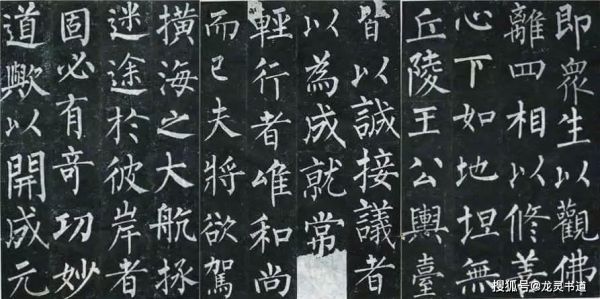 即衆生以觀佛
離四相以修善
心下如地坦無
丘陵王公輿臺
皆以誠接議者
以為成就常
輕行者唯和尚
而已夫將欲駕
橫海之大航拯
迷途於彼岸者
固必有奇功妙
道歟以開成元
搜狐号@龙灵书道